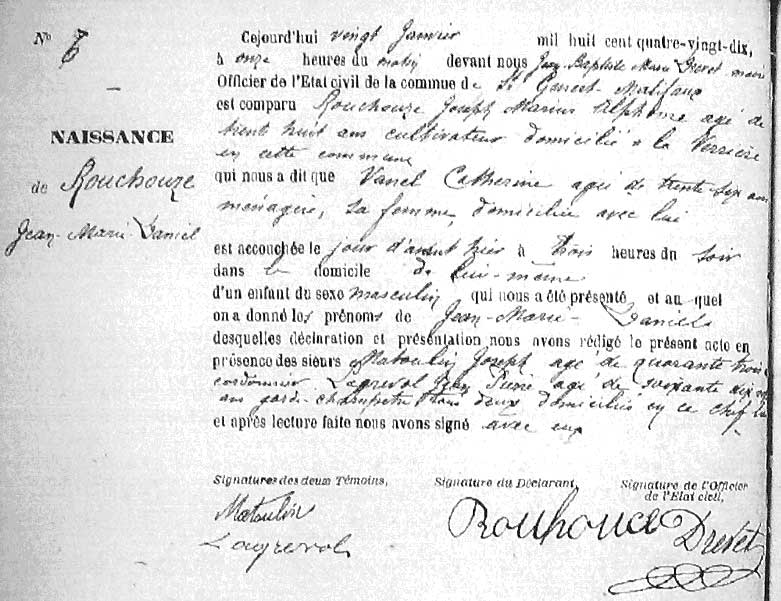 N° 6
NAISSANCE
de Rouchouze
Jean-Marie-Daniel
Cejourd'hui vingt Janvier mil huit cent quatre-vingt-dix,
à onze heures du matin devant nous Jean-Baptiste Marie Drevet maire
Officier de l'Etat civil de la commune de St Genest-Malifaux
est comparu Rouchouze Joseph Marius Alphonse agé de
trente huit ans cultivateur domicilié à la Verrerie
en cette commune
qui nous a dit que Vanel Catherine agée de trente-six ans
ménagère, sa femme, domiciliée avec lui
est accouchée le jour d'avant hier à trois heures du soir
dans le domicile de lui-même
d'un enfant du sexe masculin qui nous a été présenté et au quel
on a donné les prénoms de Jean-Marie-Daniel
desquelles déclaration et présentation nous avons rédigé le présent acte en
présence des sieurs Matoulin Joseph agé de quarante trois
cordonnier Lagrevol Jean René agé de soixante dix
ans garde champêtre tous deux domiciliés en ce chef lieu
et après lecture faite nous avons signé avec eux
Signatures des deux Témoins,
Signature du Déclarant,
Signature de l'Officier
de l'Etat civil,
Matoulin
Lagrevol
Rouchouze
Drevet